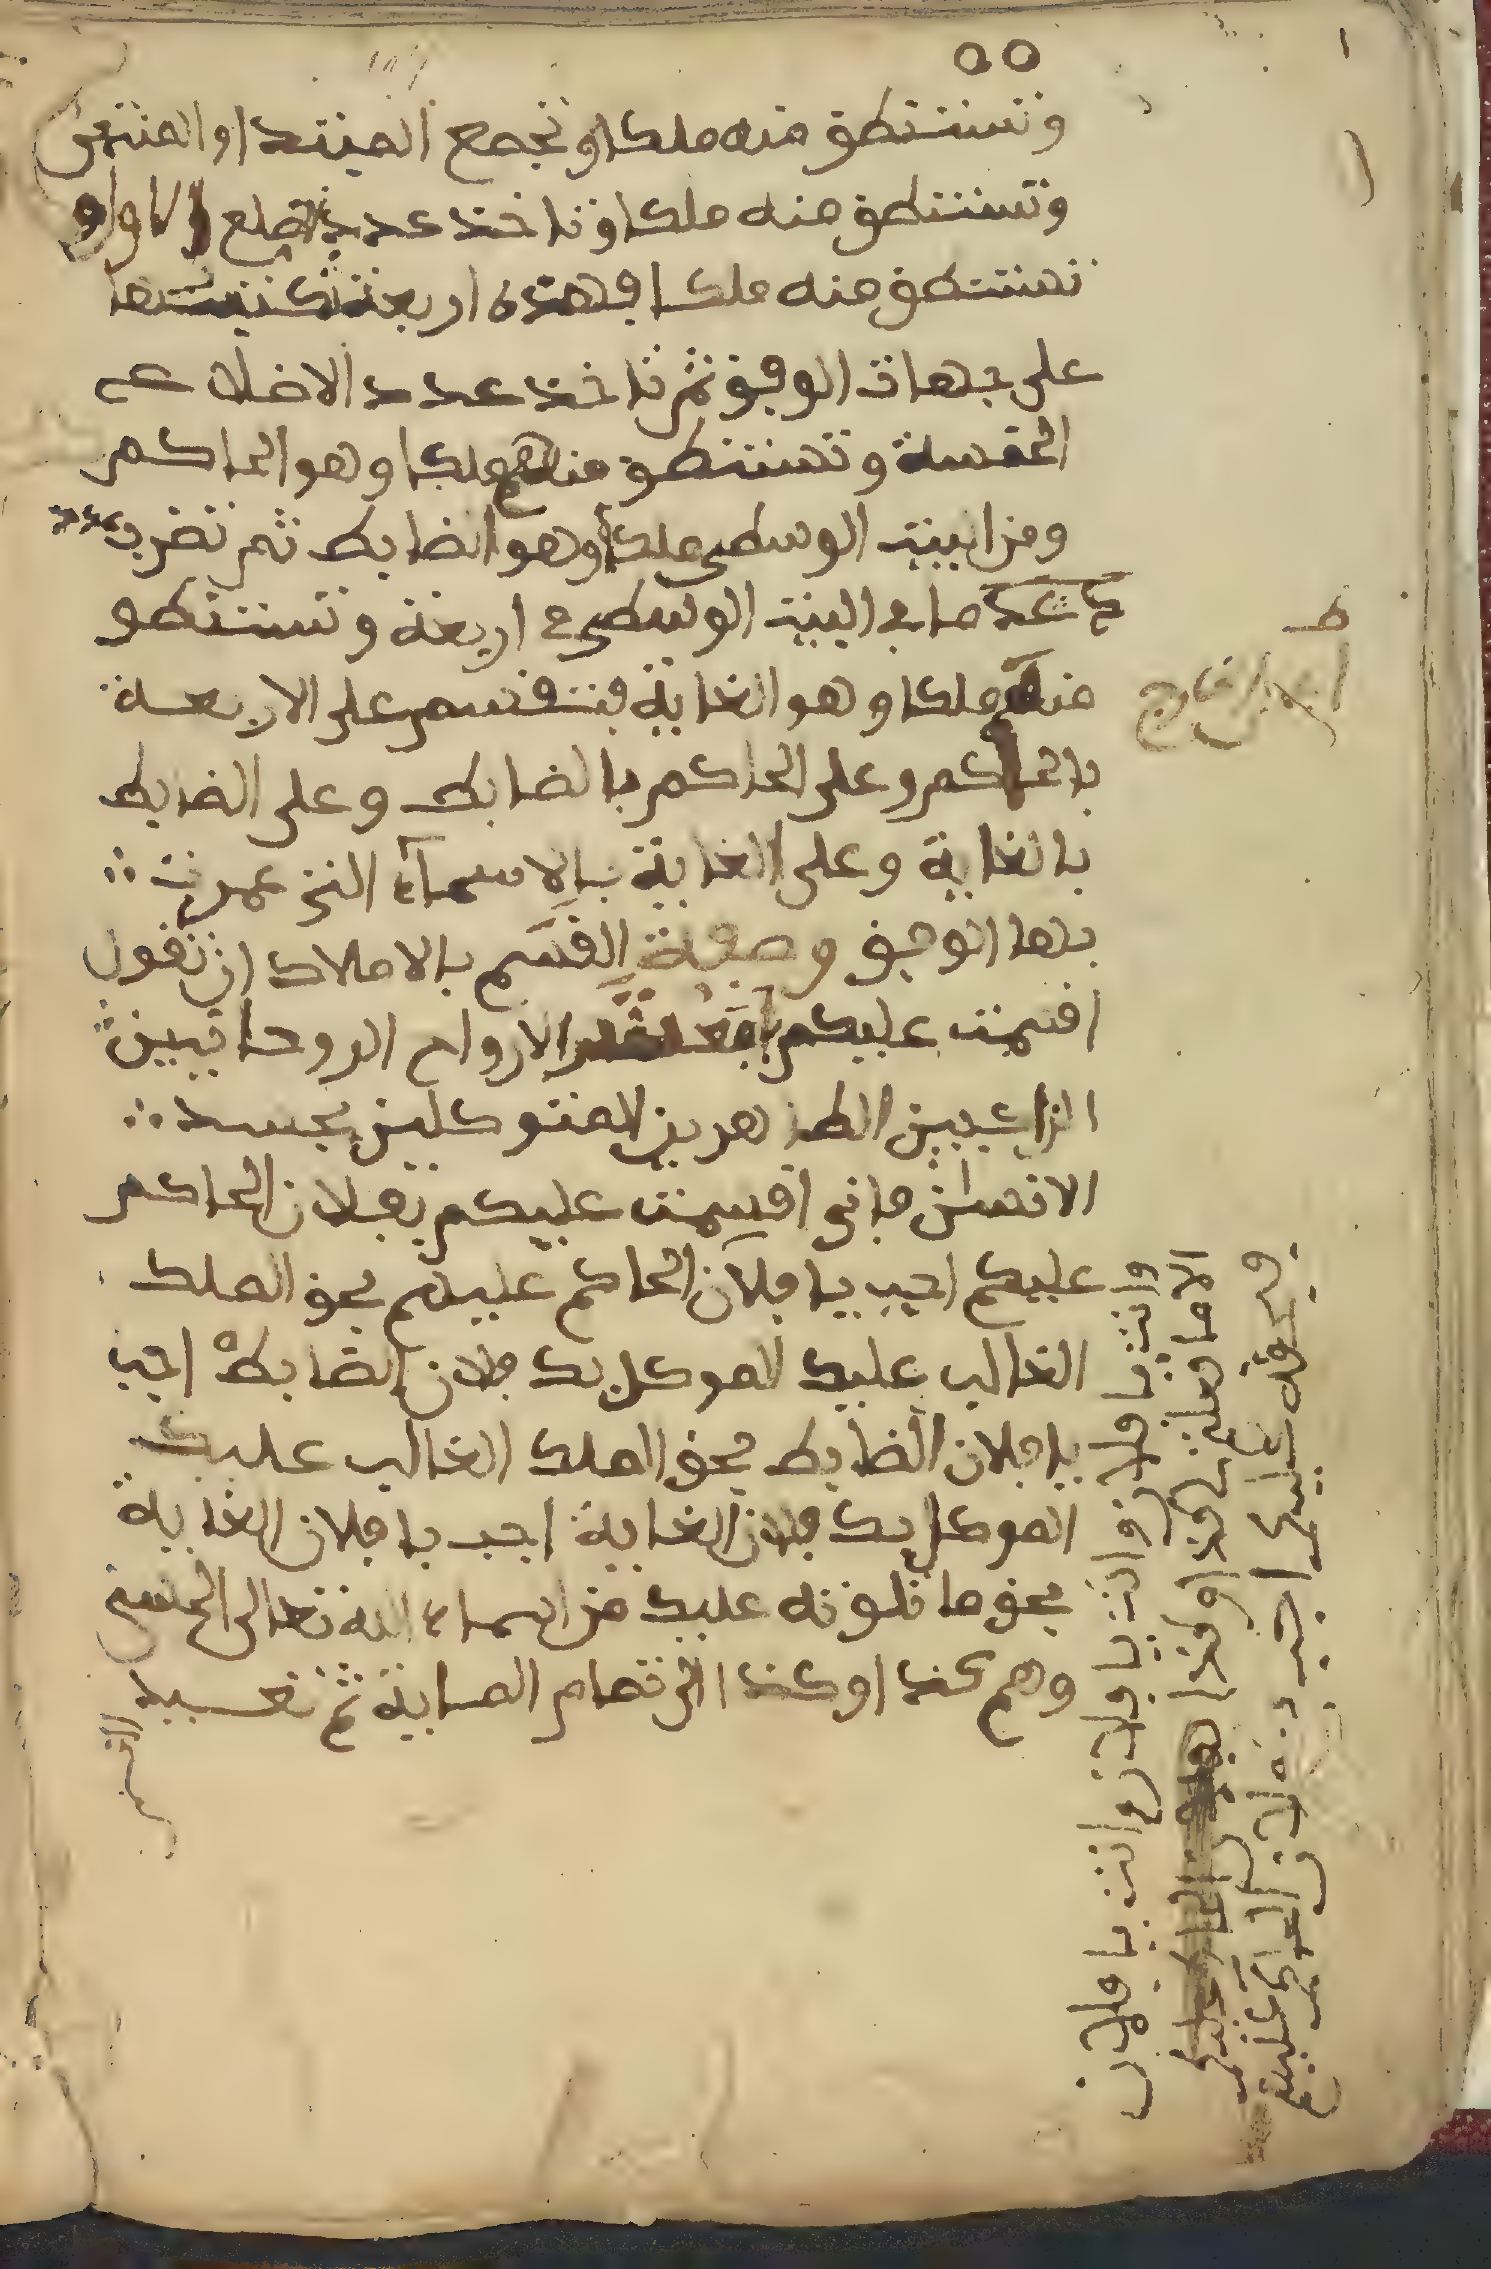 ٥٥
وتستنطق منه ملكا وتجمع المبتدا والمنتهى
وتستنطق منه ملكا وتاخذ عدد الضلع الاول و
تستنطق منه ملكا فهذه اربعة تكتبها
على جهات الوفق ثم تاخذ عدد الاضلاع
الخمسة وتستنطق منهم ملكا وهو الحاكم
ومن البيت الوسطى ملكا وهو الضابط ثم تضرب عدد
ما في البيت الوسطى في اربعة وتستنطق
منه ملكا وهو الغاية فتقسم على الاربعة
بالحاكم وعلى الحاكم بالضابط وعلى الضابط
بالغاية وعلى الغاية بالاسماء التي عمرت
بها الوفق وصفة القسم بالاملاك ان تقول
اقسمت عليكم الارواح الروحانيين
الطاهرين المتوكلين بجسد
الانسان فاني اقسمت عليكم بفلان الحاكم
عليكم اجب يا فلان الحاكم عليهم بحق الملك
الغالب عليك الموكل بك فلان الضابط اجب
يا فلان الضابط بحق الملك الغالب عليك
الموكل بك فلان الغاية اجب يا فلان الغاية
بحق ما تلوته عليك من اسماء الله تعالى الحسنى
وهم كذا وكذا الى تمام الماية ثم تعيد
القسم
وانت يا فلان وانت يا فلان وانت يا فلان
الا ما فعلتم كذا وكذا
عليكم اجب يا فلان الحاكم عليهم